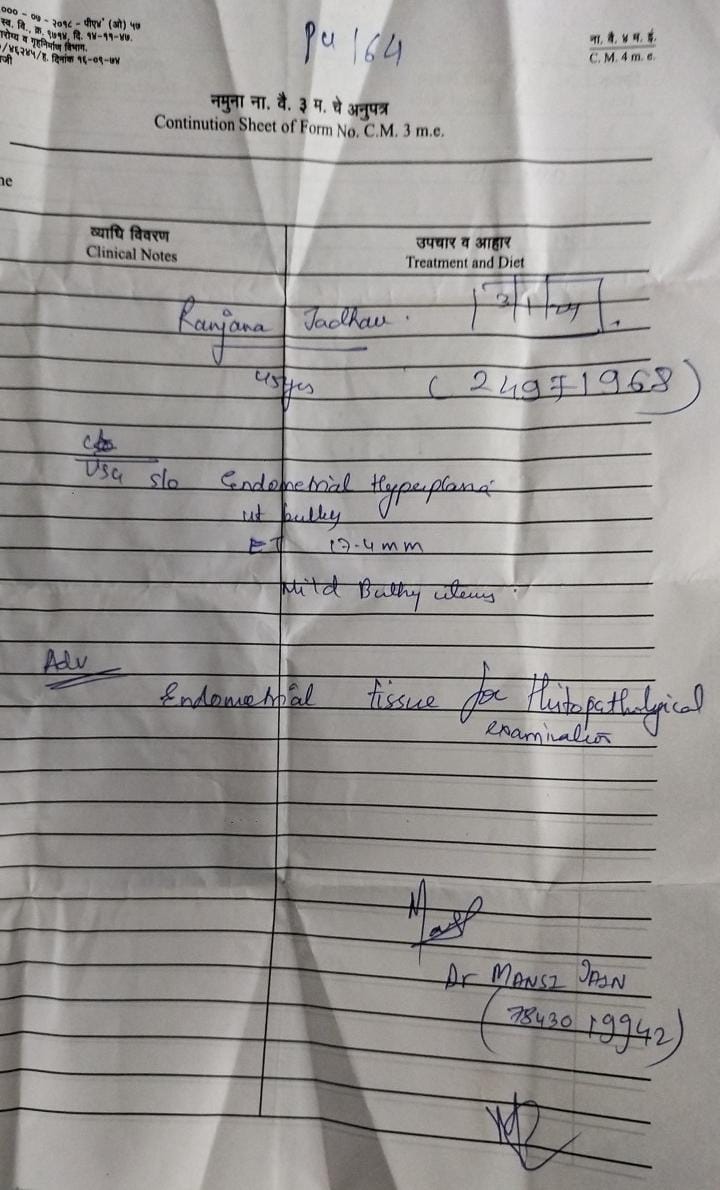 ००० - ०७ - २०१८ - पीएम (ओ) ५७
स्व. वि., क्र. १७१४, दि. १४-११-४७.
रोग्य व गृहनिर्माण विभाग.
/४६२४५/ह. दिनांक १६-०९-७४
जी
Pu 164
ना. वै. ४ म. ई.
C. M. 4 m. e.
नमुना ना. वै. ३ म. चे अनुपत्र
Continution Sheet of Form No. C.M. 3 m.e.
ne
व्याधि विवरण
Clinical Notes
उपचार व आहार
Treatment and Diet
Ranjana Jadhav.
3/1/24
45yrs (24971968)
c/o
USG s/o Endometrial Hyperplasia
ut bulky
ET 17.4 mm
Mild Bulky uterus.
Adv
Endometrial tissue for Histopathological
examination
Dr MANSI JAIN
(78430 19942)